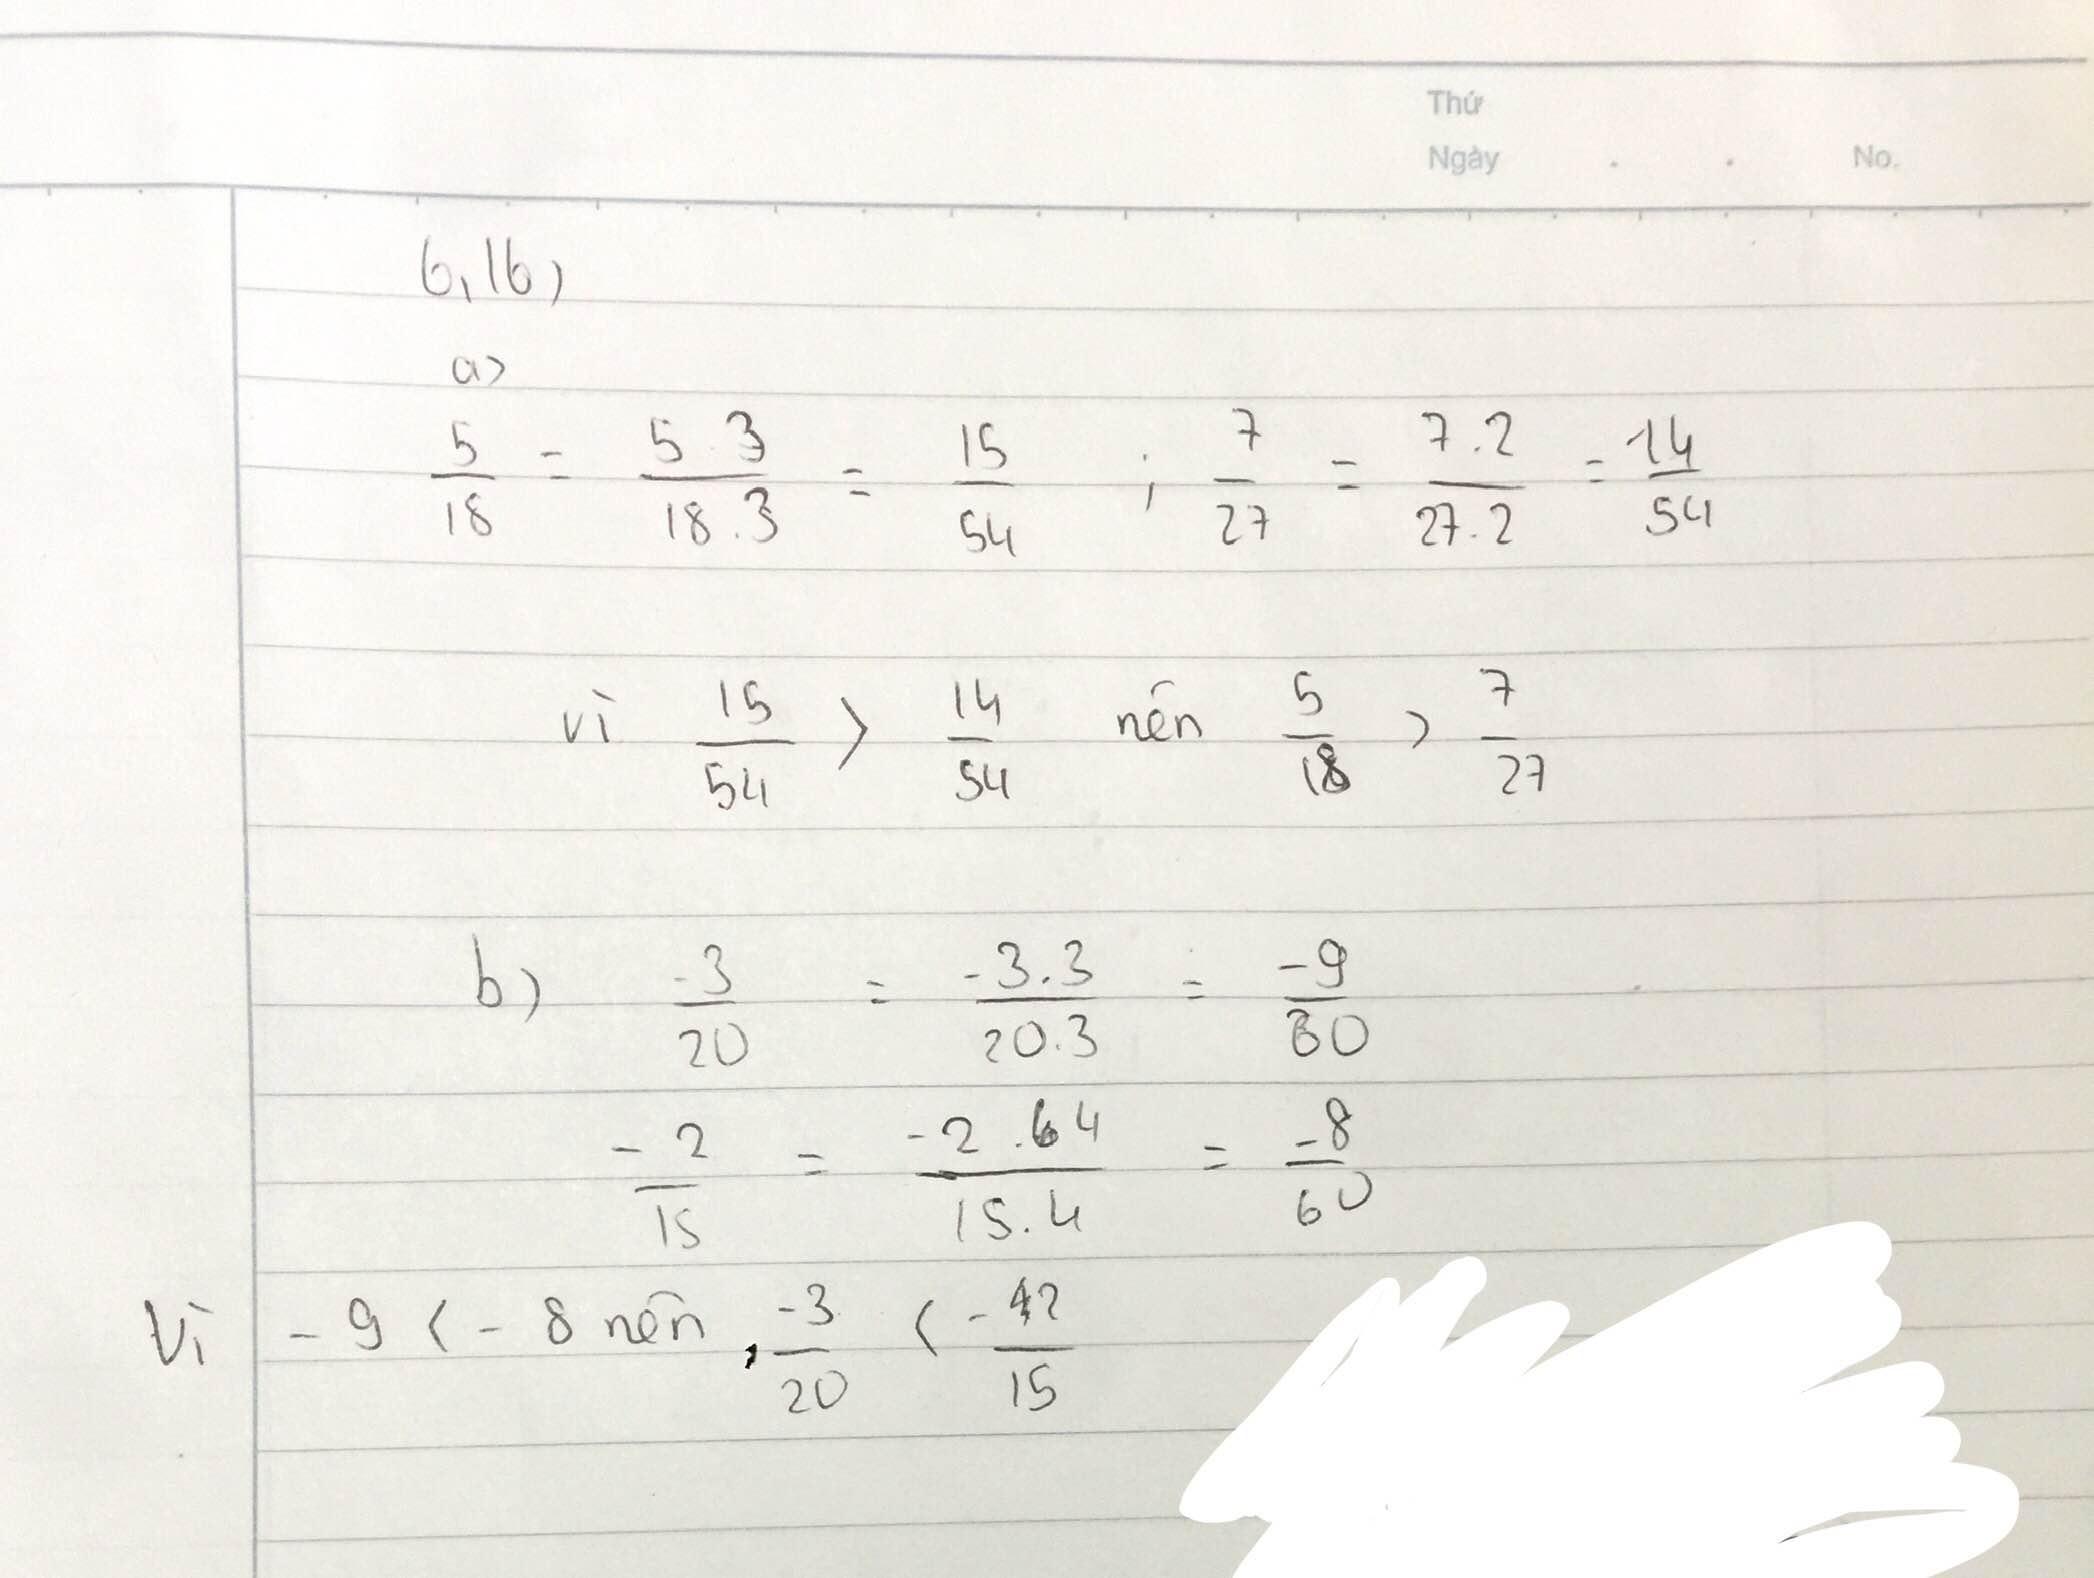 Thứ
Ngày . . No.
6,16)
a)
5/18 = 5.3/18.3 = 15/54 ; 7/27 = 7.2/27.2 = 14/54
Vì 15/54 > 14/54 nên 5/18 > 7/27
b) -3/20 = -3.3/20.3 = -9/60
-2/15 = -2.4/15.4 = -8/60
Vì -9 < -8 nên -3/20 < -2/15